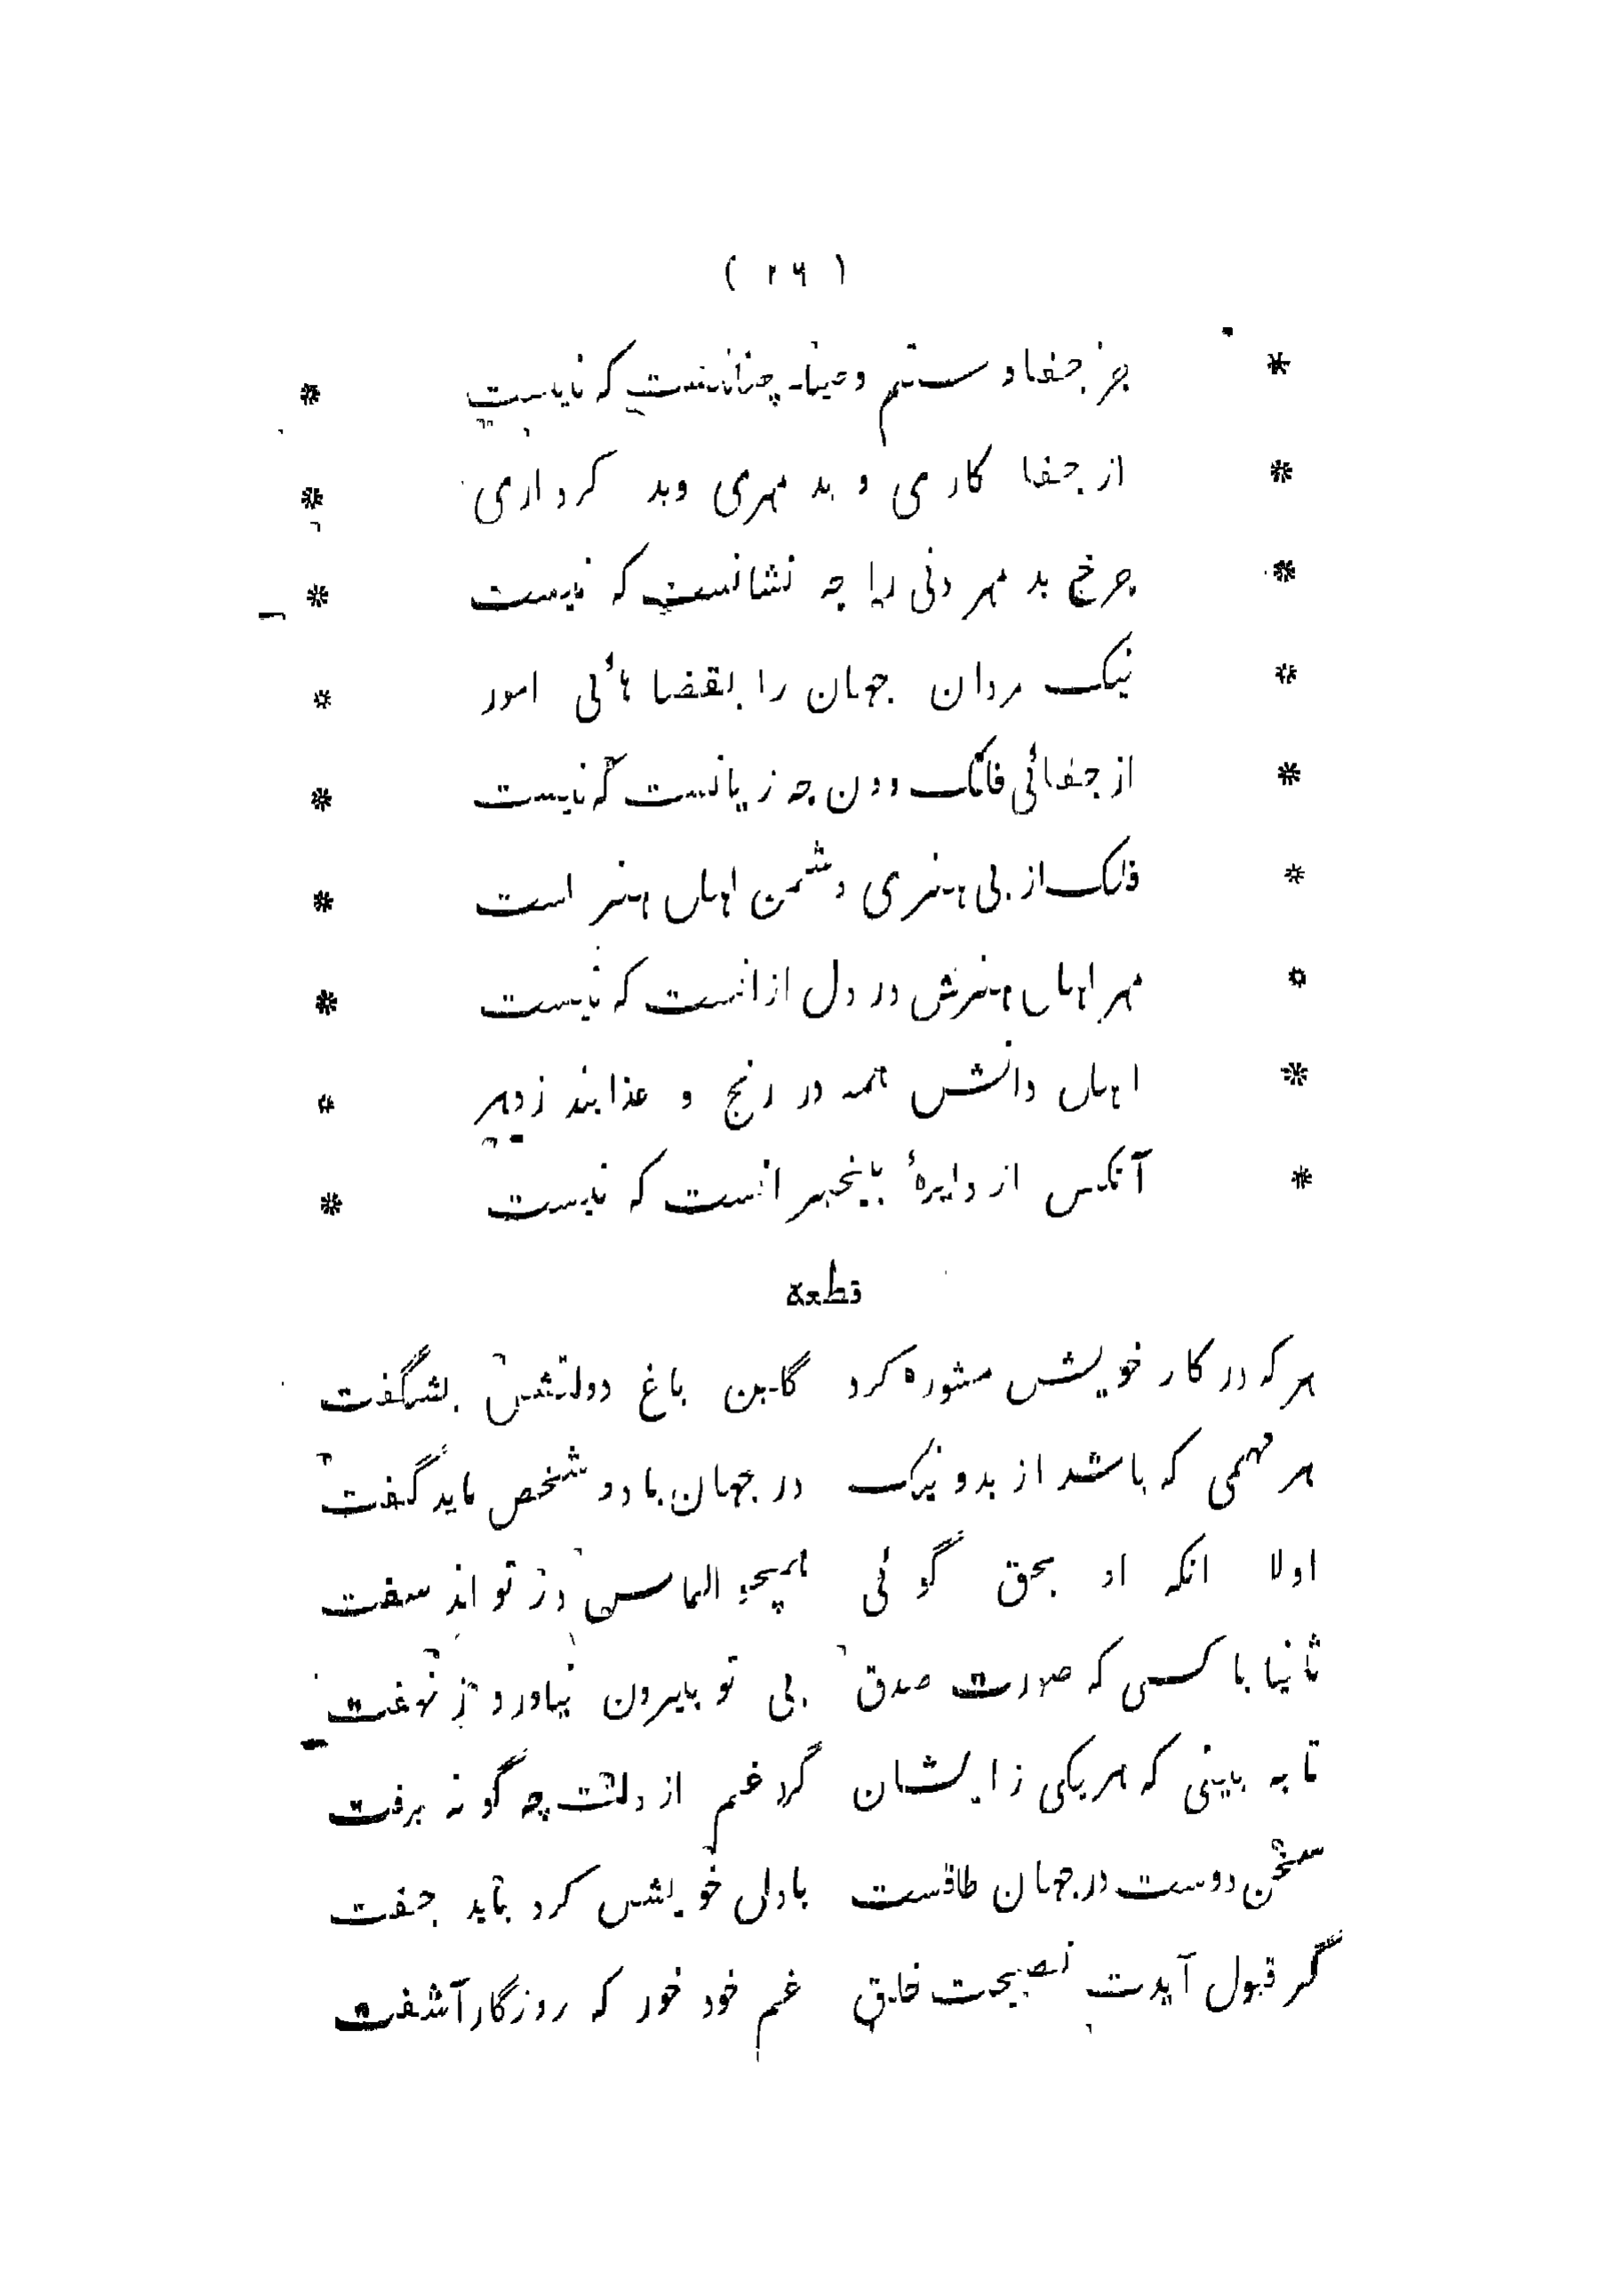 ( ۲۶ )
* جز جفا و ستم و چنانست که نیست *
* از جفا کاری و بد مهری وبد کرداری *
* چرخ بد مهر دنی را چه نشانست که نیست *
* نیک مردان جهان را بقضا هائی امور *
* از جفائی فلک دون چه زیانست که نیست *
* فلک از بی هنری دشمن اهل هنر است *
* مهر اهل هنرش در دل ازانست که نیست *
* اهل دانش همه در رنج و عذابند ز دهر *
* آنکس از دایرهٔ بیخبر انست که نیست *
قطعة
هر که در کار خویش مشوره کرد گلبن باغ دولتش بشگفت
هر مهمی که باشد از بد و نیک در جهان با دو شخص باید گفت
اولا انکه او بحق گوئی همچو الماس در تواند سفت
ثانیا با کسی که صورت صدق بی تو بیرون نیاورد ز نهفت
تا به بینی که هر یکی ز ایشان گرد غم از دلت چه گونه برفت
سخن دوست در جهان طاقست با دل خویش کرد باید جفت
گر قبول آیدت نصیحت خلق غم خود خور که روزگار آشفت